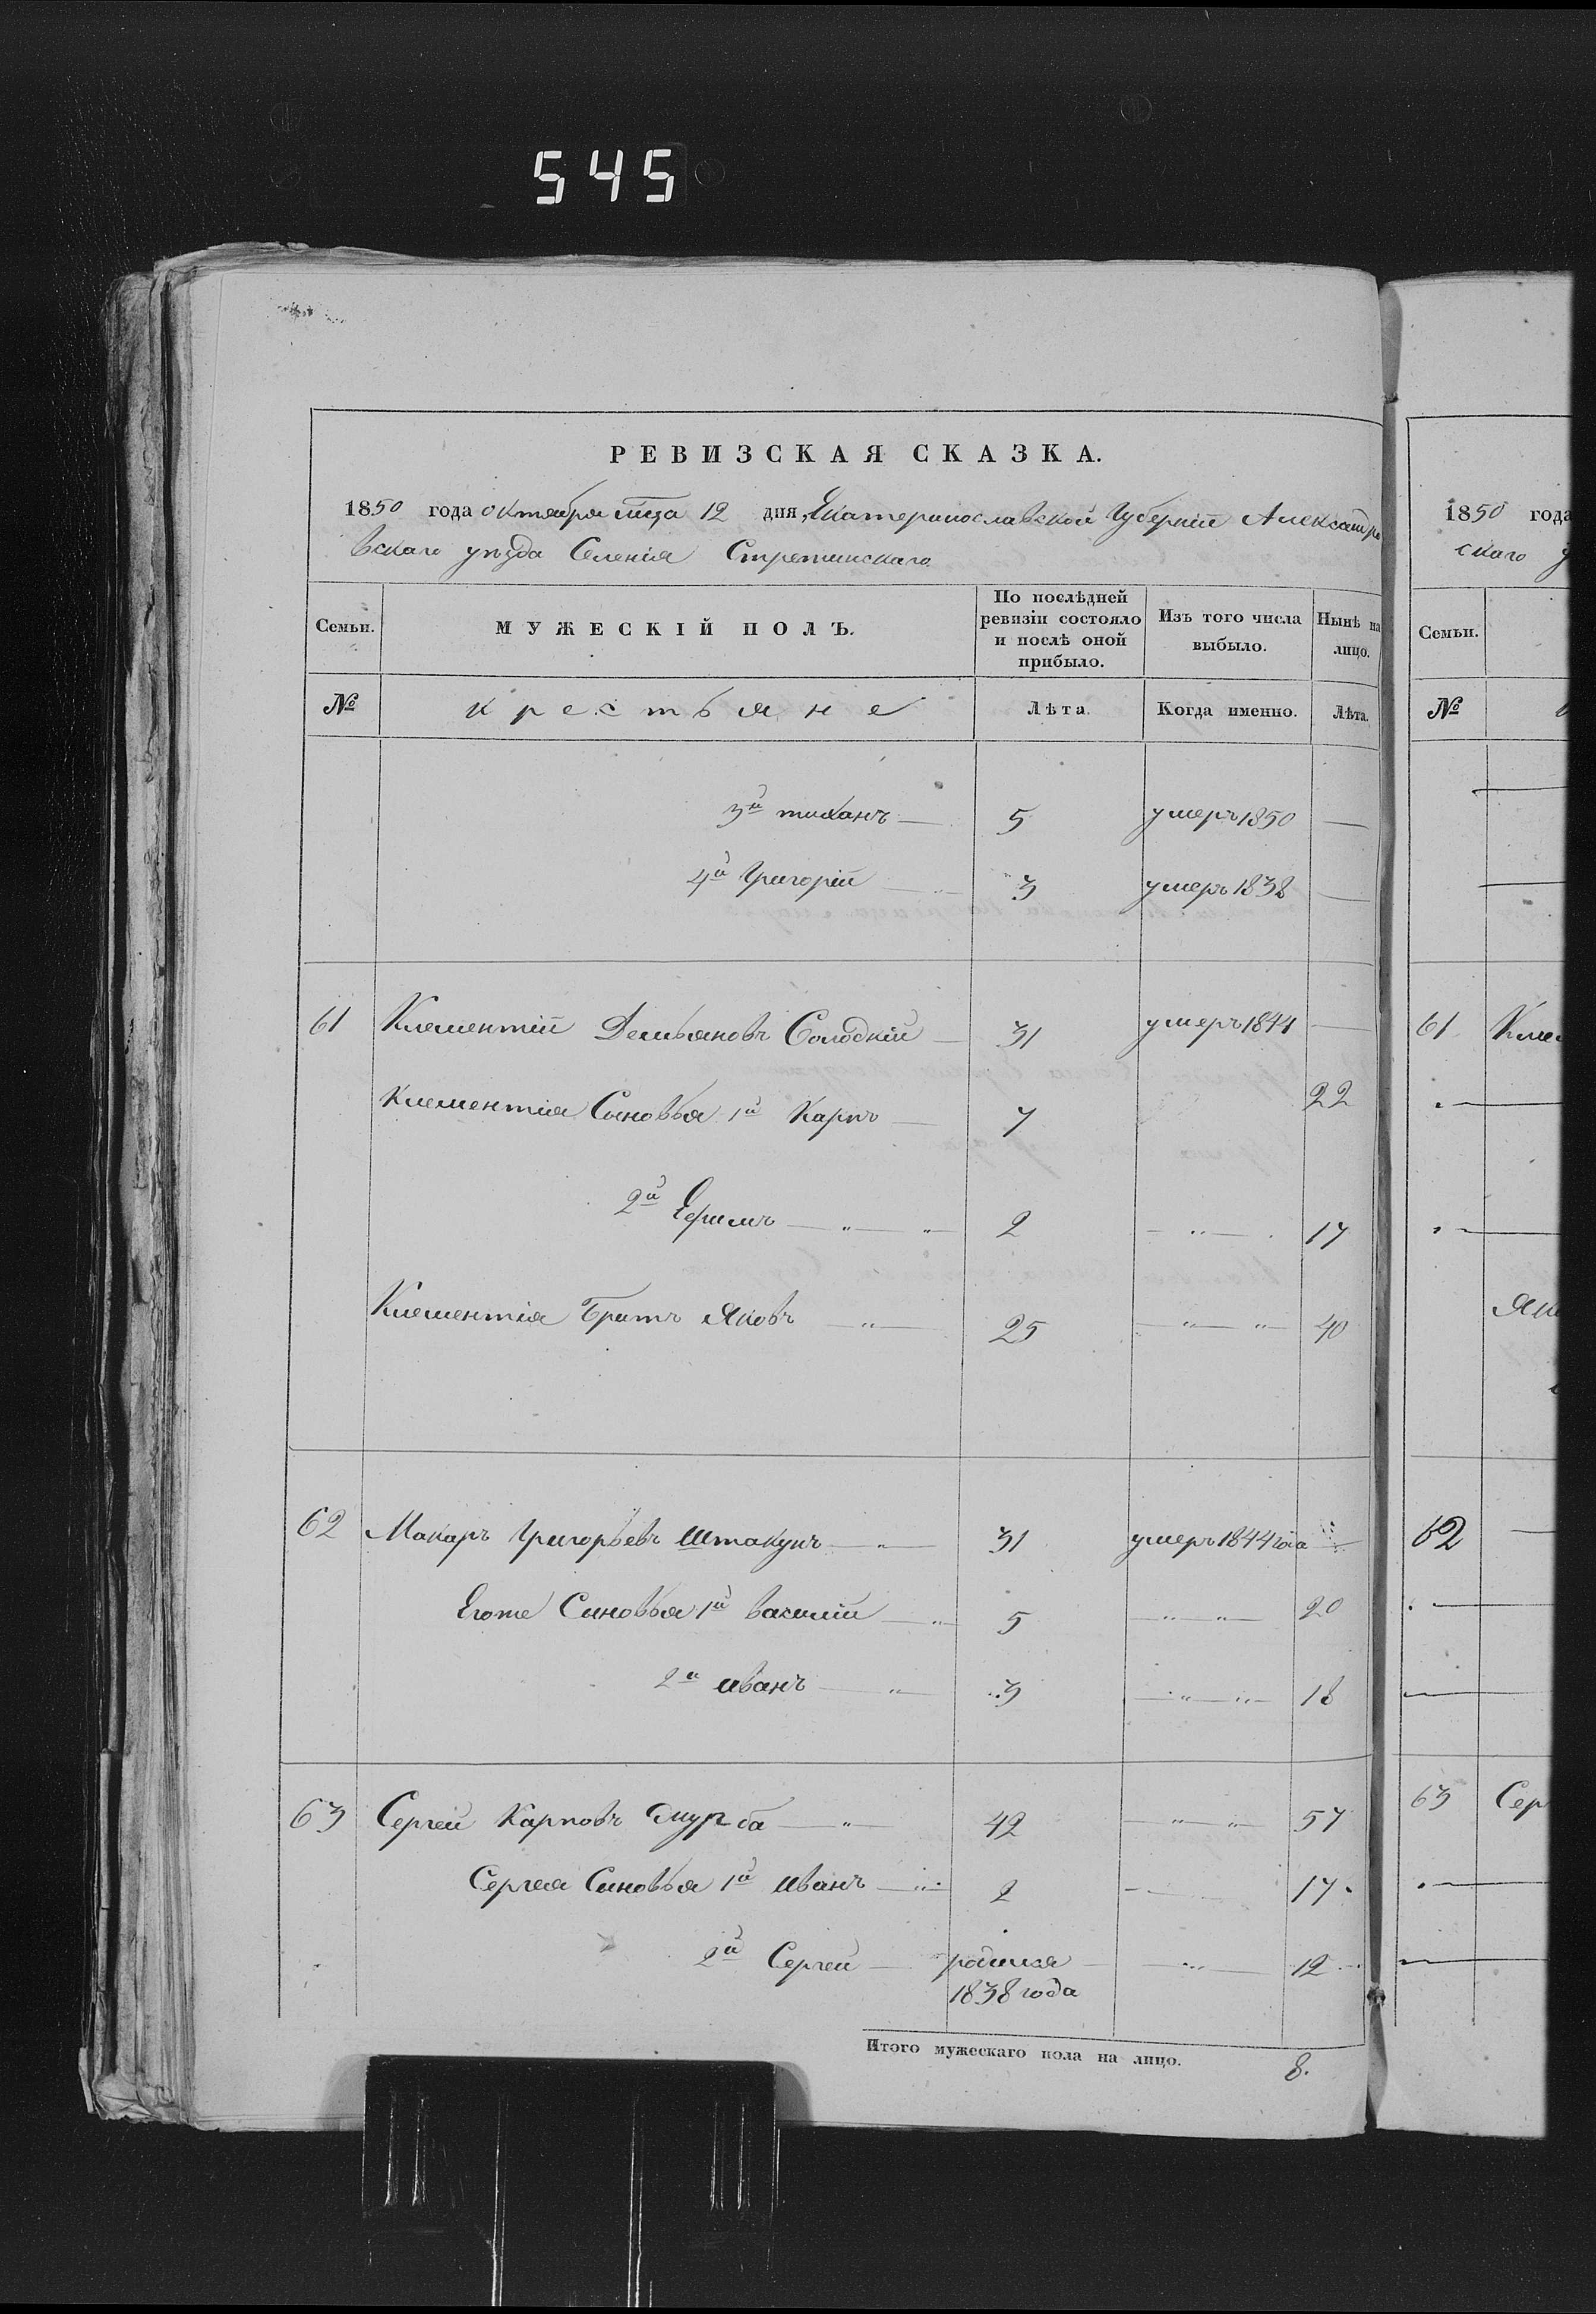 545
РЕВИЗСКАЯ СКАЗКА.
1850 года октября мца 12 дня, Екатеринославской Губерніи Александро
вскаго уезда Селенія Стретинскаго
Семьи. МУЖЕСКІЙ ПОЛЪ. По послѣдней ревизіи состояло и послѣ оной прибыло. Изъ того числа выбыло. Нынѣ на лицо.
№ крестьяне Лѣта. Когда именно. Лѣта.
3й тиханъ — 5 умеръ 1850 —
4й Григорій — 3 умеръ 1838 —
61 Клементій Демьяновъ Солодкій — 31 умеръ 1844 —
Клементія Сыновья 1й Карпъ — 7 22
2й Ефимъ — 2 — 17
Клементія Братъ Яковъ — 25 — 40
62 Макаръ Григорьевъ Штакунъ — 31 умеръ 1844 года —
Егоже Синовья 1й василій — 5 — 20
2й иванъ — 3 — 18
63 Сергей Карповъ — 42 — 57
Сергея Синовья 1й иванъ — 2 — 17
2й Сергей — родился — 12
1838 года
Итого мужескаго пола на лицо. 8.
1850 года
скаго
Семьи.
№
61
62
63 Сер